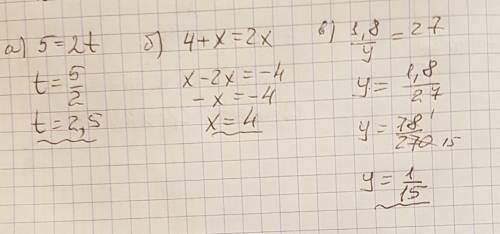 а) 5=2t
t=5/2
t=2,5
б) 4+x=2x
x-2x=-4
-x=-4
x=4
в) 1,8/y=27
y=1,8/27
y=18 1/270 15
y=1/15